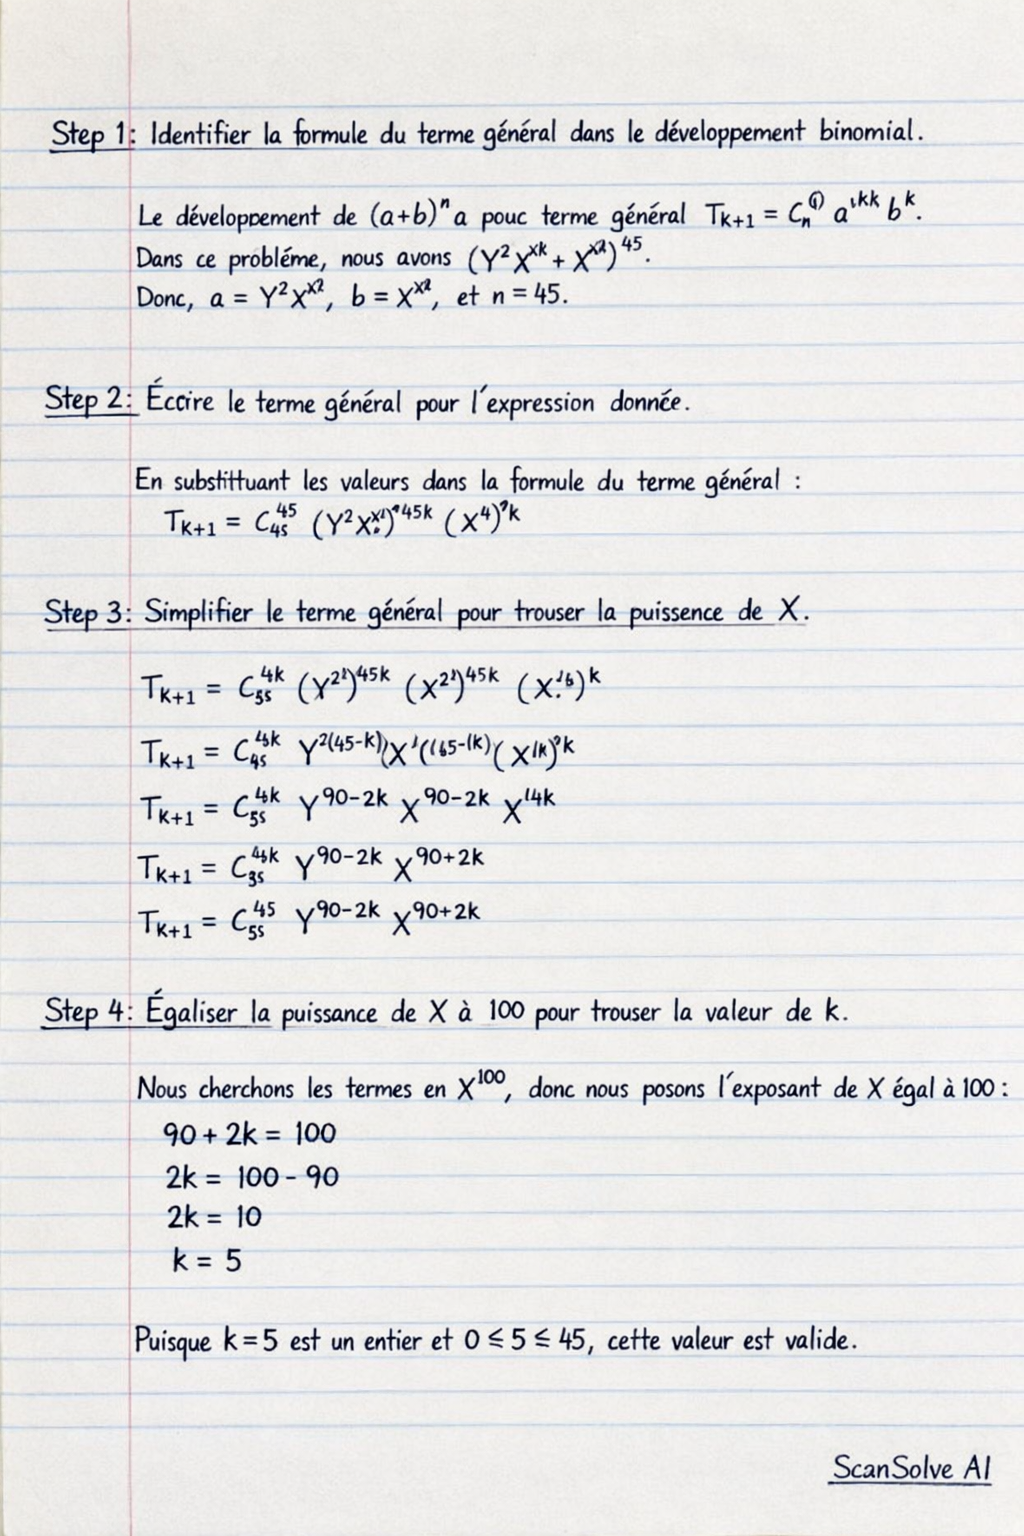 Step 1: Identifier la formule du terme général dans le développement binomial.
Le développement de (a+b)ⁿ a pouc terme général Tₖ₊₁ = Cₙ⁽¹⁾ a^ıkk bᵏ.
Dans ce probléme, nous avons (Y²X^xk + X^x2)⁴⁵.
Donc, a = Y²X^x2, b = X^x2, et n = 45.
Step 2: Éccire le terme général pour l'expression donnée.
En substittuant les valeurs dans la formule du terme général :
Tₖ₊₁ = C₄₅⁴⁵ (Y²X)^45k (X⁴)^k
Step 3: Simplifier le terme général pour trouser la puissence de X.
Tₖ₊₁ = C₅₅^4k (Y²)^45k (X²)^45k (X)^k
Tₖ₊₁ = C₄₅ Y^2(45-k) X
Tₖ₊₁ = C₅₅ Y^90-2k X^90-2k X^14k
Tₖ₊₁ = C₃₅ Y^90-2k X^90+2k
Tₖ₊₁ = C₅₅⁴⁵ Y^90-2k X^90+2k
Step 4: Égaliser la puissance de X à 100 pour trouser la valeur de k.
Nous cherchons les termes en X¹⁰⁰, donc nous posons l'exposant de X égal à 100 :
90 + 2k = 100
2k = 100 - 90
2k = 10
k = 5
Puisque k = 5 est un entier et 0 ≤ 5 ≤ 45, cette valeur est valide.
ScanSolve AI